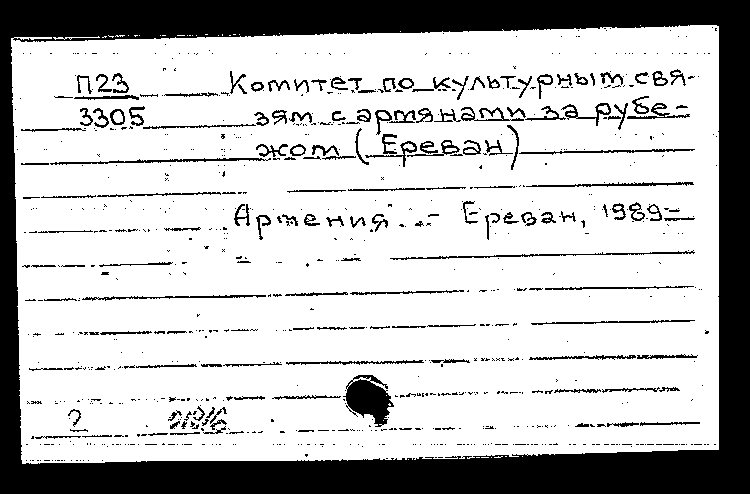 П23 Комитет по культурным свя-
3305 зям с армянами за рубе-
жом (Ереван)
Армения. - Ереван, 1989-
2